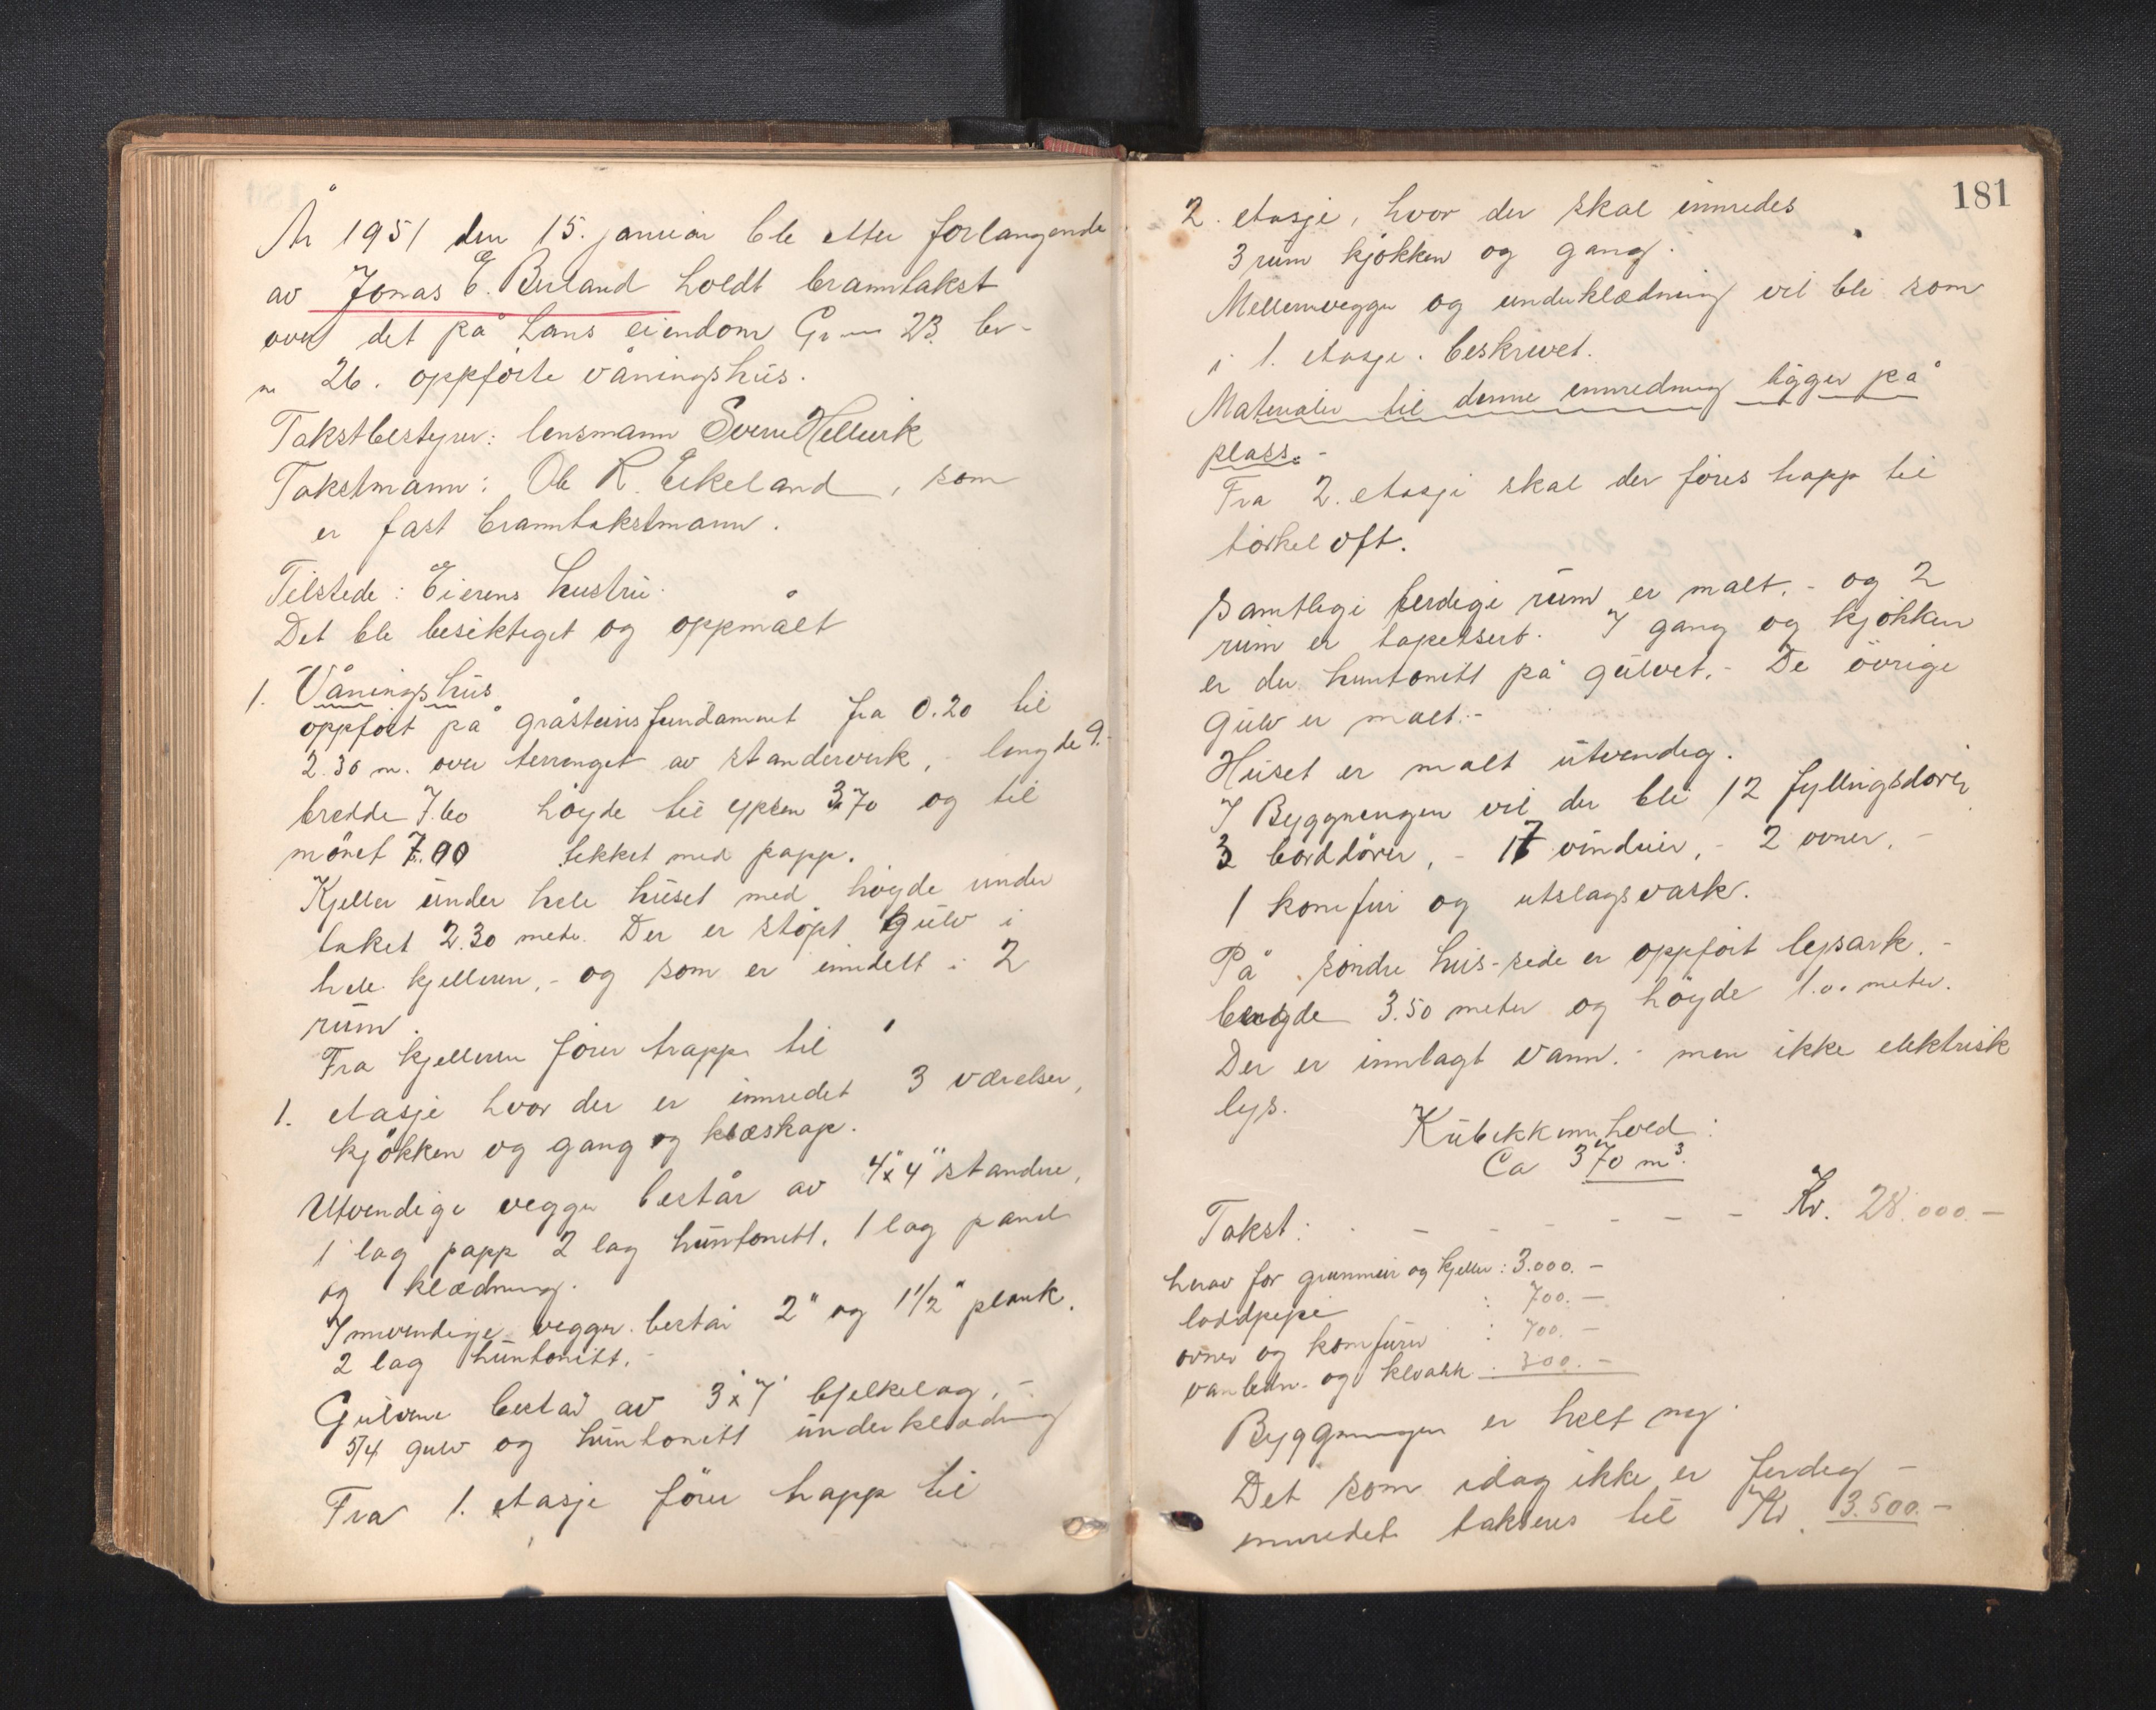 År 1951 den 15. januar ble etter forlangende
av Jonas E. Birland holdt branntakst
over det på hans eiendom Gr. nr 23. br-
nr 26. oppförte våningshus.
Takstbestyrer: lensmann Sverre Hellvik
Takstmann: Ole R. Eikeland, som
er fast branntakstmann.
Tilstede: Eierens hustru.
Det ble besiktiget og oppmålt
1. Våningshus
oppfört på gråsteinsfundament fra 0.20 til
2.30 m. over terrenget av standerverk, - lengde 9.-
bredde 7.60 höyde til ypsen 3.70 og til
mönet 7.00 tekket med papp.
Kjeller under hele huset med höyde under
taket 2.30 meter. Der er stöpt gulv i
hele kjelleren, - og som er inndelt i 2
rum.
Fra kjelleren förer trapp til
1. etasje hvor der er innredet 3 værelser,
kjökken og gang og klæskap.
Utvendige vegger består av 4"x4" standere,
1 lag papp 2 lag huntonitt, 1 lag panel
og klædning.
Innvendige vegger består 2" og 1 1/2" plank,
2 lag huntonitt.
Gulvene består av 3"x7" bjelkelag, -
5/4 gulv og huntonitt underklædning
Fra 1. etasje förer trapp til
181
2. etasje, hvor der skal innredes
3 rum kjökken og gang.
Mellemvegger og underklædning vil bli som
i 1. etasje beskrevet.
Materialer til denne innredning ligger på
plass. -
Fra 2. etasje skal der föres trapp til
törkeloft.
Samtlige ferdige rum er malt, - og 2
rum er tapetsert. I gang og kjökken
er der huntonitt på gulvet. - De övrige
gulv er malt. -
Huset er malt utvendig.
I Byggningen vil der bli 12 fyllingsdörer,
3 borddörer, - 17 vinduer, - 2 ovner, -
1 komfur og utslagsvask.
På söndre hus-side er oppfört lysark. -
lengde 3.50 meter og höyde 1.00 meter.
Der er innlagt vann. - men ikke elektrisk
lys.
Kubikkinnhold:
Ca 370 m³.
Takst: - - - - - - Kr. 28.000.-
herav for grunnmur og kjeller: 3.000.-
loddpipe : 700.-
ovner og komfurer : 700.-
vanledn. og kloakk : 300.-
Byggningen er helt ny.
Det som idag ikke er ferdig -
innredet takseres til Kr. 3.500.-